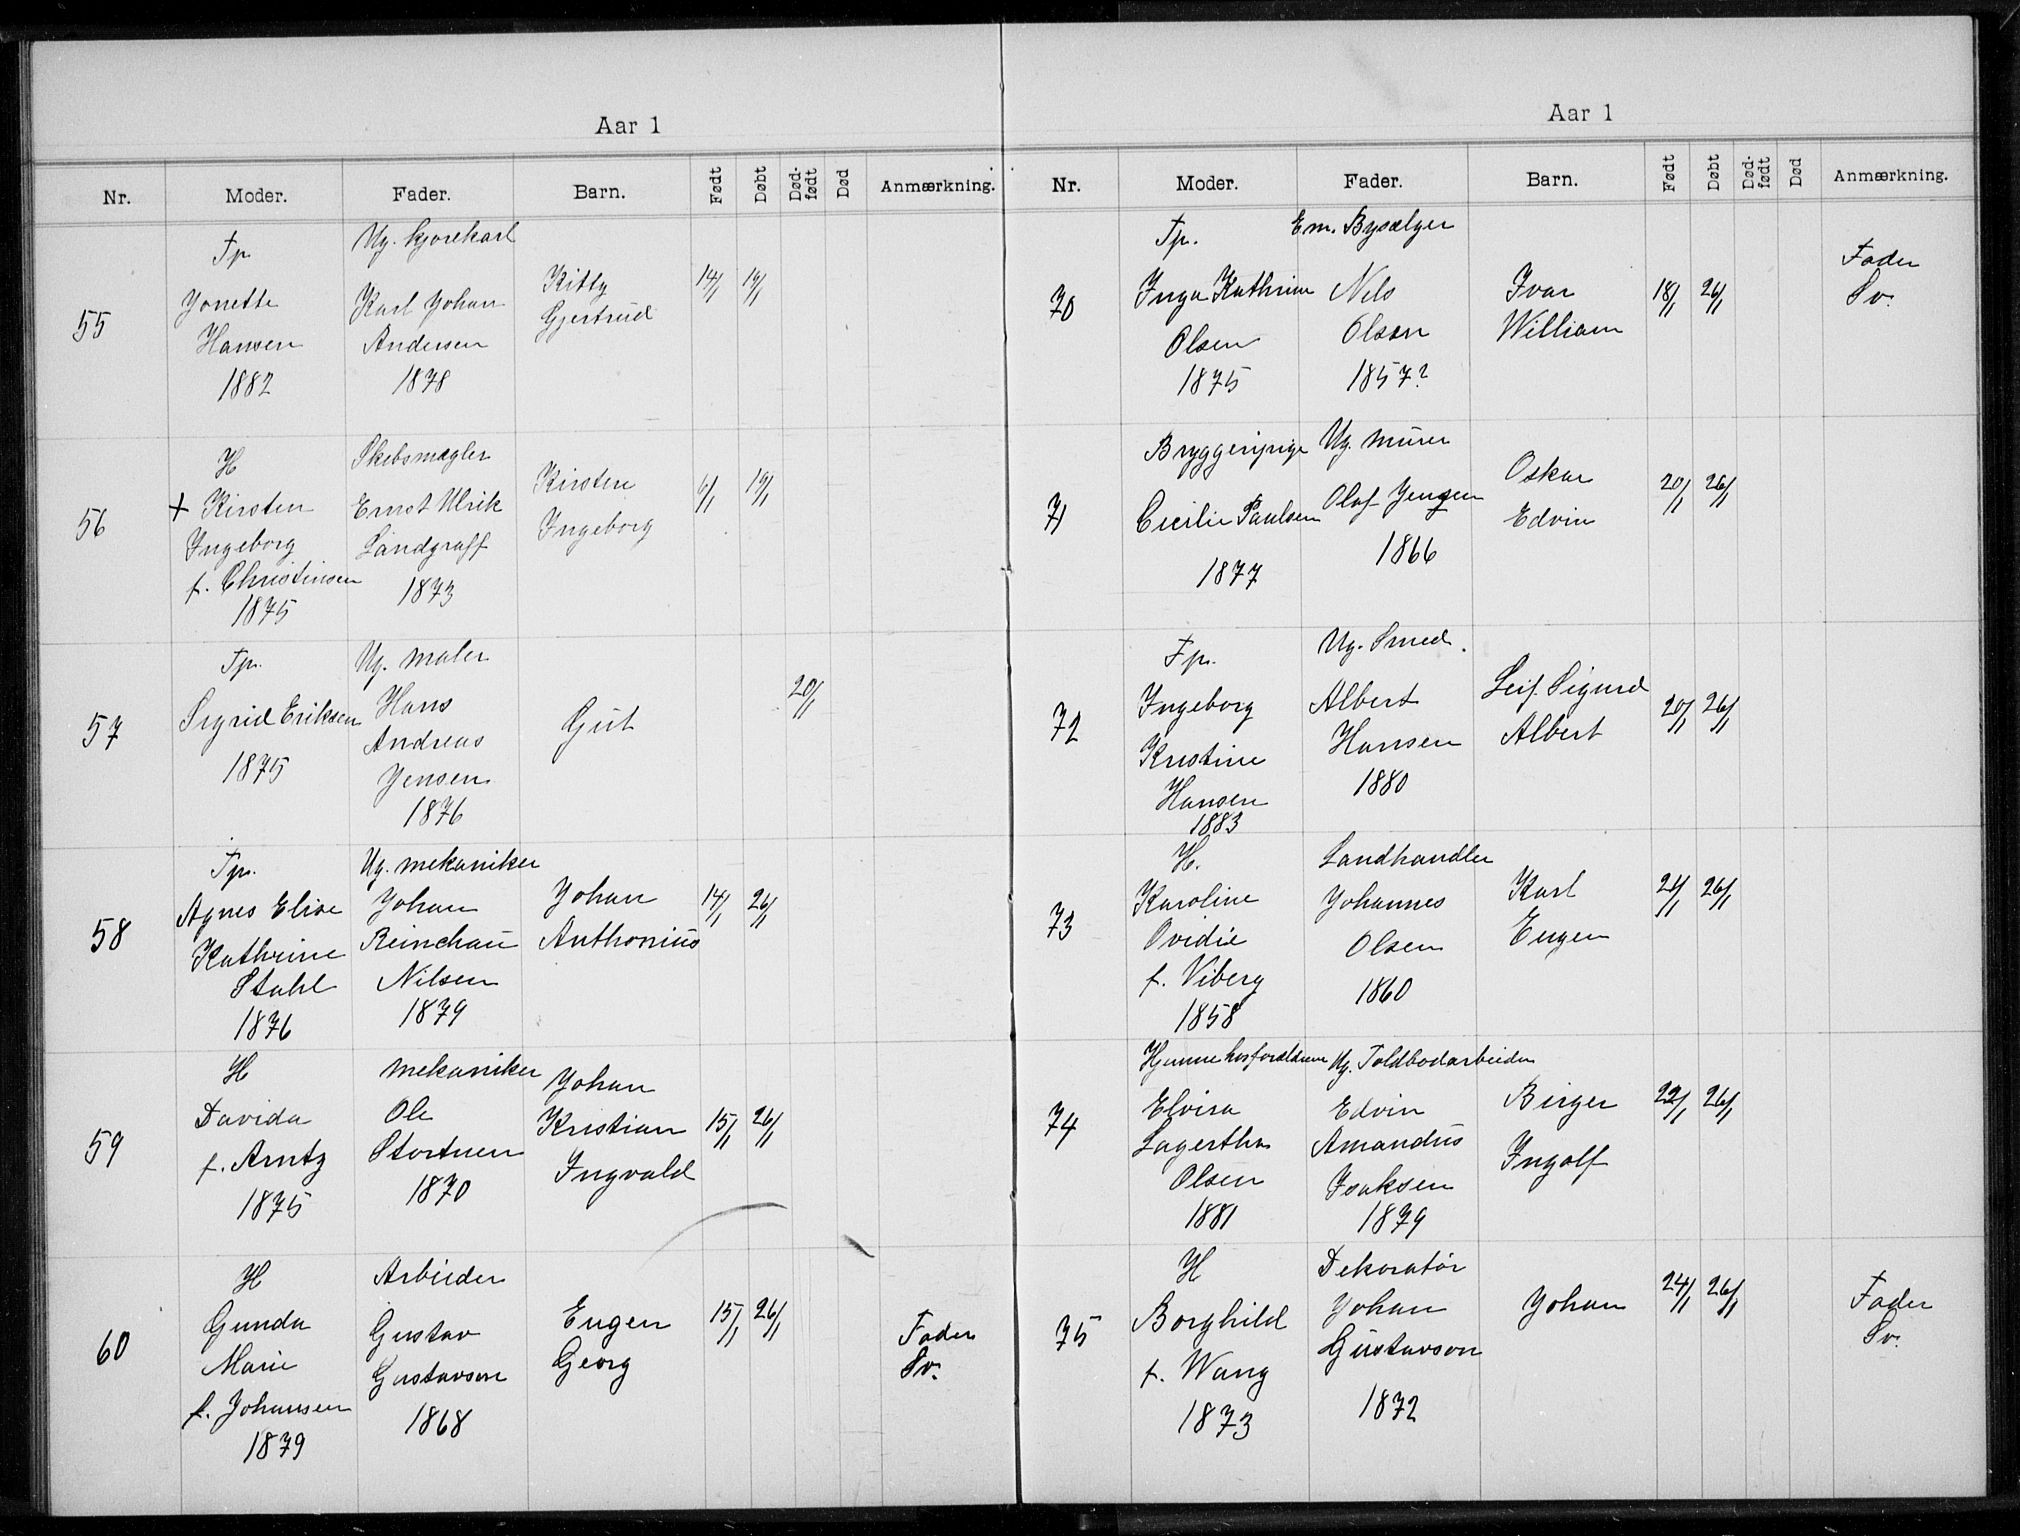 Aar 1
Nr. Moder. Fader. Barn. Født Døbt Død-født Død Anmærkning.
55
Tp.
Jonette
Hansen
1882
Ug. kjørekarl
Karl Johan
Andersen
1878
Kitty
Gjertrud
14/1 19/1
56
H
+ Kirsten
Ingeborg
f. Christinsen
1875
Skibsmægler
Ernst Ulrik
Landgraff
1873
Kirsten
Ingeborg
6/1 19/1
57
Tp.
Sigrid Eriksen
1875
Ug. maler
Hans
Andreas
Jensen
1876
Gut
20/1
58
Tp.
Agnes Elise
Kathrine
Stahl
1876
Ug. mekaniker
Johan
Reinchau
Nilsen
1879
Johan
Anthonius
14/1 26/1
59
H
Davida
f. Arntz
1875
mekaniker
Ole
Stortuen
1870
Johan
Kristian
Ingvald
15/1 26/1
60
H
Gunda
Marie
f. Johansen
1879
Arbeider
Gustav
Gustavson
1868
Eugen
Georg
15/1 26/1
Fader
Sv.
Aar 1
Nr. Moder. Fader. Barn. Født Døbt Død-født Død Anmærkning.
70
Tp.
Inga Kathrine
Olsen
1875
Em. Bysælger
Nels
Olsson
1857?
Ivar
William
18/1 26/1
Fader
Sv.
71
Bryggeripige
Cecilie Paulsen
1877
Ug. murer
Olaf Jensen
1866
Oskar
Edvin
20/1 26/1
72
Fp.
Ingeborg
Kristine
Hansen
1883
Ug. Smed.
Albert
Hansen
1880
Leif Sigurd
Albert
20/1 26/1
73
H.
Karoline
Ovidie
f. Viberg
1858
Landhandler
Johannes
Olsen
1860
Karl
Eugen
21/1 26/1
74
Hjemme hos forældrene
Elvira
Lagertha
Olsen
1881
Ug. Toldbodarbeider
Edvin
Amandus
Isaksen
1879
Birger
Ingolf
22/1 26/1
75
H
Borghild
f. Wang
1873
Dekoratør
Johan
Gustavson
1872
Johan
24/1 26/1
Fader
Sv.